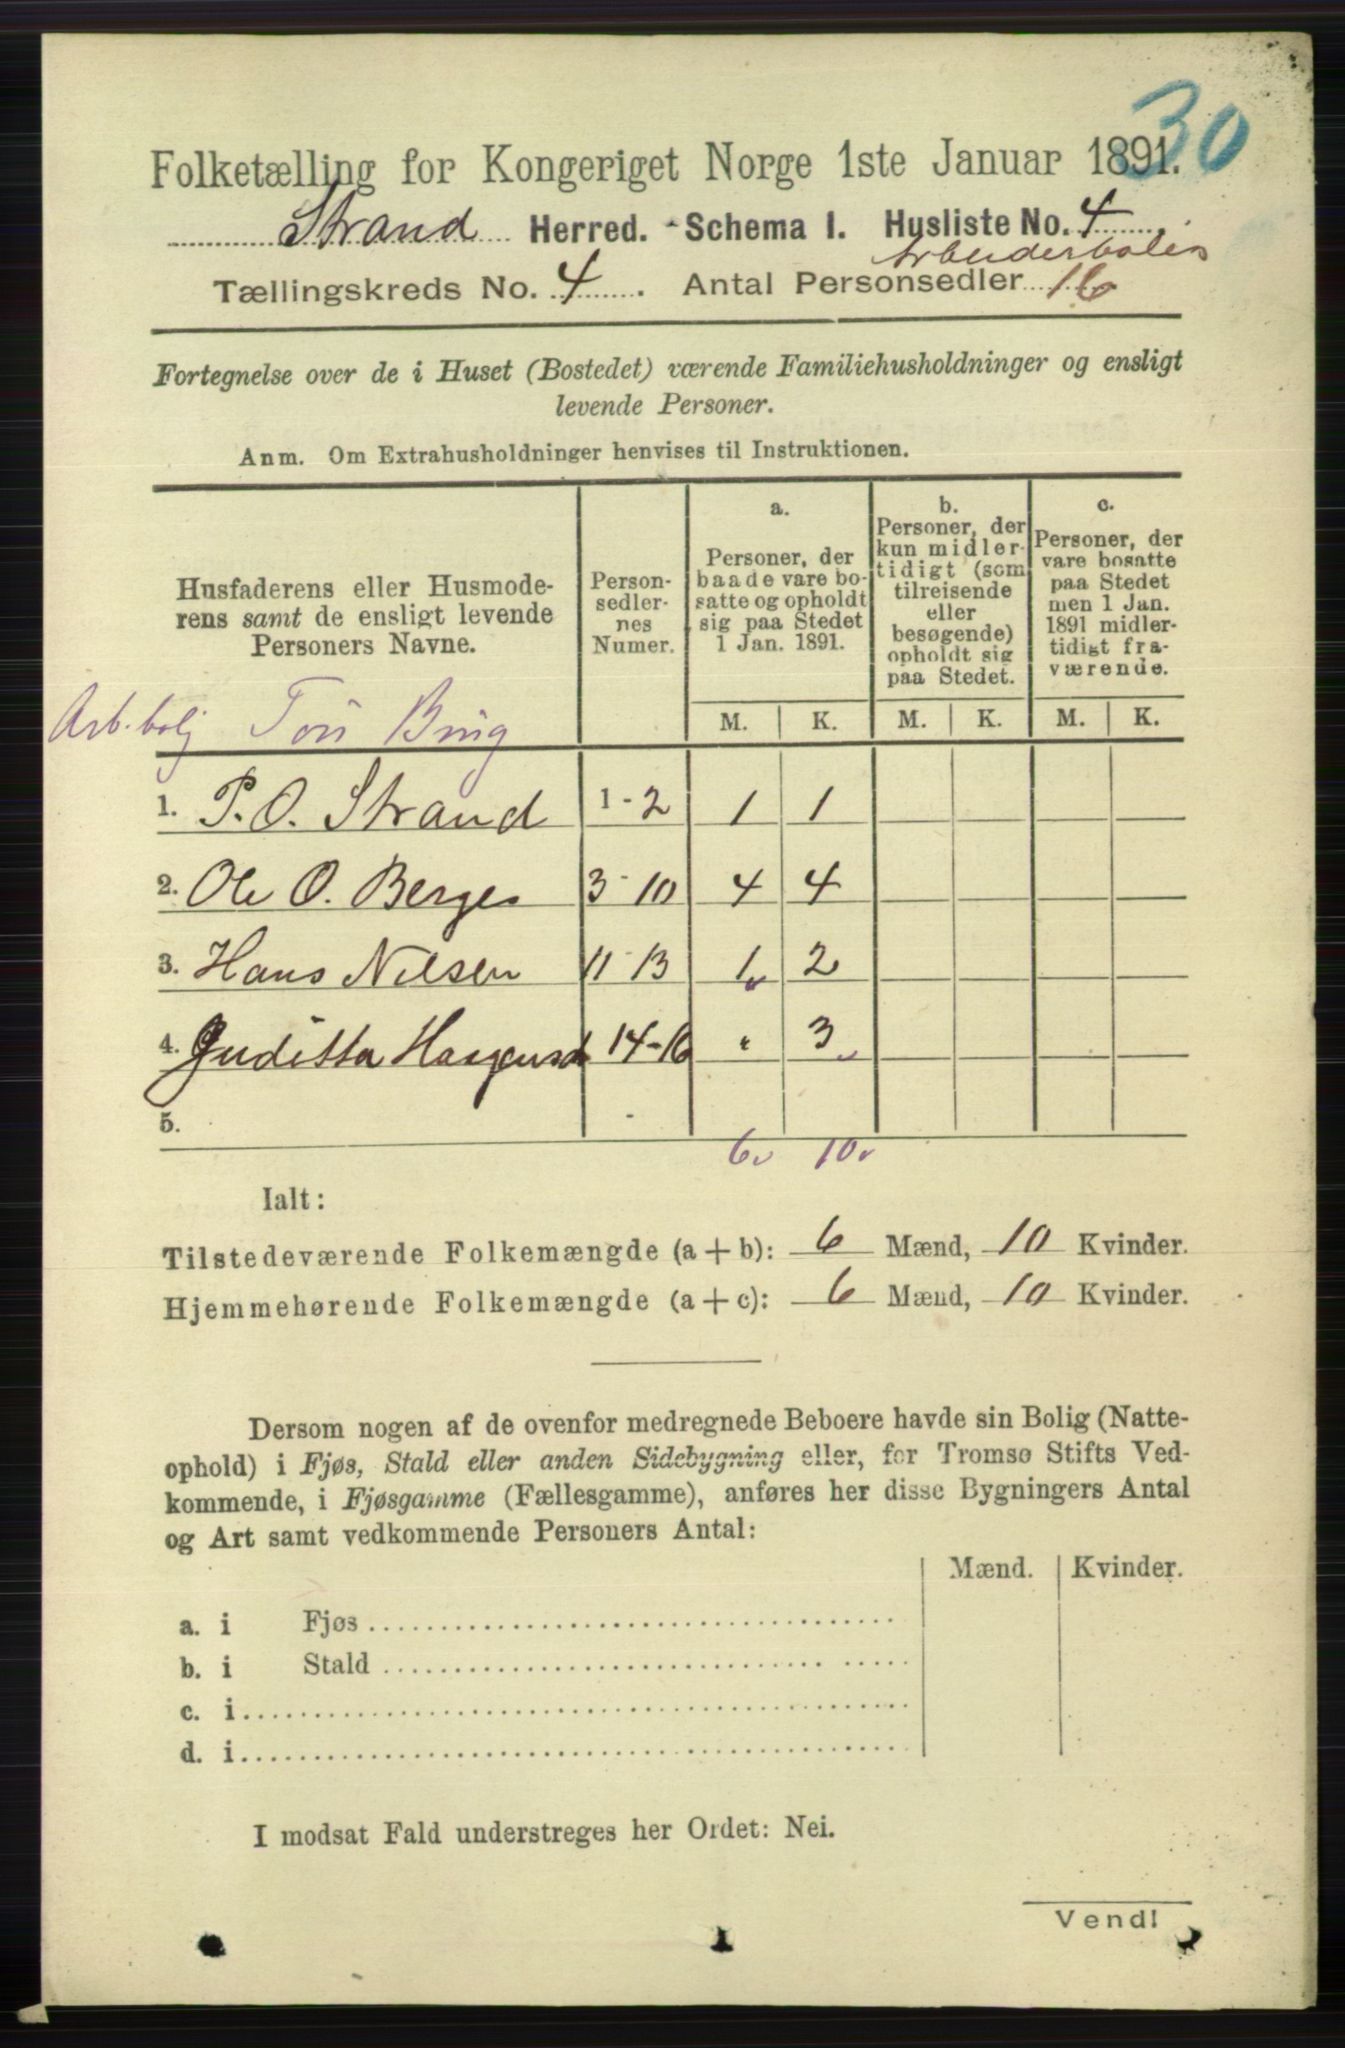 30
Folketælling for Kongeriget Norge 1ste Januar 1891.
Strand Herred. Schema I. Husliste No. 4
Arbeiderbolig
Tællingskreds No. 4. Antal Personsedler 16
Fortegnelse over de i Huset (Bostedet) værende Familiehusholdninger og ensligt
levende Personer.
Anm. Om Extrahusholdninger henvises til Instruktionen.
Husfaderens eller Husmode-
rens samt de ensligt levende
Personers Navne.
Person-
sedler-
nes
Numer.
a.
Personer, der
baade vare bo-
satte og opholdt
sig paa Stedet
1 Jan. 1891.
b.
Personer, der
kun midler-
tidigt (som
tilreisende
eller
besøgende)
opholdt sig
paa Stedet.
c.
Personer, der
vare bosatte
paa Stedet
men 1 Jan.
1891 midler-
tidigt fra-
værende.
M. K. M. K. M. K.
Arb.bolj
1. P. O. Strand 1-2 1 1
2. Ole O. Berge 3-10 4 4
3. Hans Nilsen 11-13 1 2
4. Juditta 14-16 " 3
5. -
6 10
Ialt:
Tilstedeværende Folkemængde (a + b): 6 Mænd, 10 Kvinder.
Hjemmehørende Folkemængde (a + c): 6 Mænd, 10 Kvinder.
Dersom nogen af de ovenfor medregnede Beboere havde sin Bolig (Natte-
ophold) i Fjøs, Stald eller anden Sidebygning eller, for Tromsø Stifts Ved-
kommende, i Fjøsgamme (Fællesgamme), anføres her disse Bygningers Antal
og Art samt vedkommende Personers Antal:
Mænd. Kvinder.
a. i Fjøs
b. i Stald
c. i
d. i
I modsat Fald understreges her Ordet: Nei.
Vend!